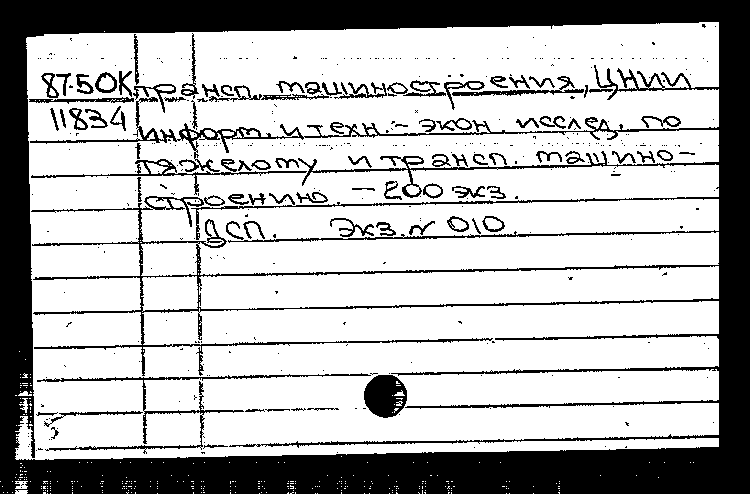 87-5ОК трансп. машиностроения, ЦНИИ
11834 информ. и техн.- экон. исслед. по
тяжелому и трансп. машино-
строению. - 200 экз.
ДСП. Экз. № 010.